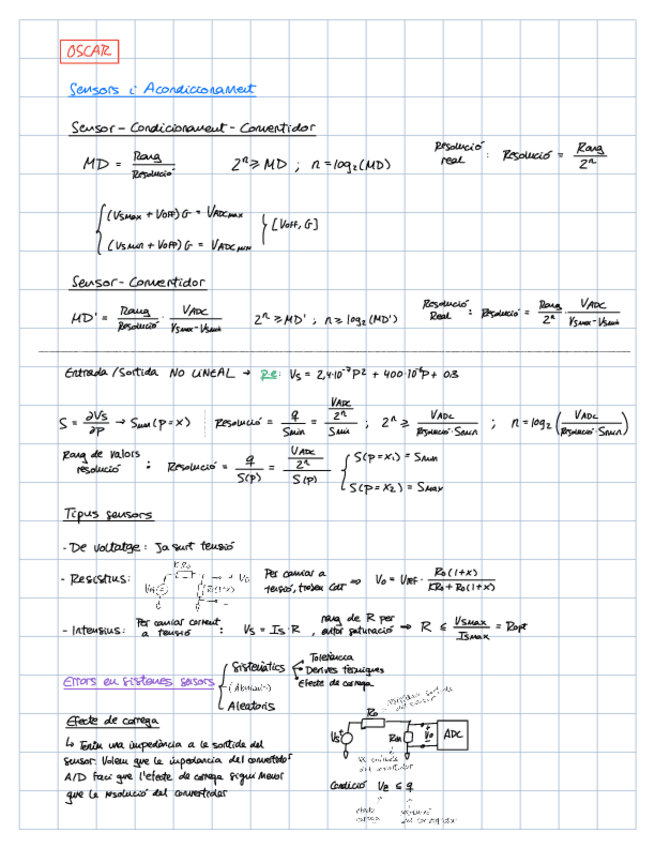 OSCAR
Sensors i Acondicionament
Sensor - Condicionament - Convertidor
MD = Rang / Resolució    2^n ≥ MD ; n = log2(MD)    Resolució real : Resolució = Rang / 2^n
{ (Vsmax + Voff) G = VADCmax
(Vsmin + Voff) G = VADCmin } [Voff, G]
Sensor - Convertidor
MD' = Rang / Resolució · VADC / Vsmax - Vsmin    2^n ≥ MD' ; n ≥ log2(MD')    Resolució Real : Resolució = Rang / 2^n · VADC / Vsmax - Vsmin
Entrada / Sortida NO LINEAL →    Vs = 2,4·10^-7 P² + 400·10^-6 P + 0.3
S = ∂Vs / ∂P → Smin (P = x)    Resolució = q / Smin = (VADC / 2^n) / Smin ; 2^n ≥ VADC / Resolució · Smin ; n = log2 (VADC / Resolució · Smin)
Rang de valors resolució : Resolució = q / S(P) = (VADC / 2^n) / S(P) { S(P = x1) = Smin
S(P = x2) = Smax
Tipus sensors
- De voltatge: Ja surt tensió
- Resistius: KRo    Vo    Per canviar a tensió,    Vo = VREF · Ro(1+x) / KRo + Ro(1+x)
- Intensius: Per canviar corrent a tensió : Vs = Is · R , rang de R per evitar saturació ⇒ R ≤ Vsmax / Ismax = Ropt
Errors en sistemes sensors { Sistemàtics { Tolerància
Derives tèrmiques
Efecte de carrega
Aleatoris
Efecte de carrega
↳ Tenim una impedància a la sortida del
sensor. Volem que la impedancia del convertidor
A/D faci que l'efecte de carrega sigui menor
que la resolució del convertidor
Ro
Vs    Vo    ADC
Condició    ≤ q